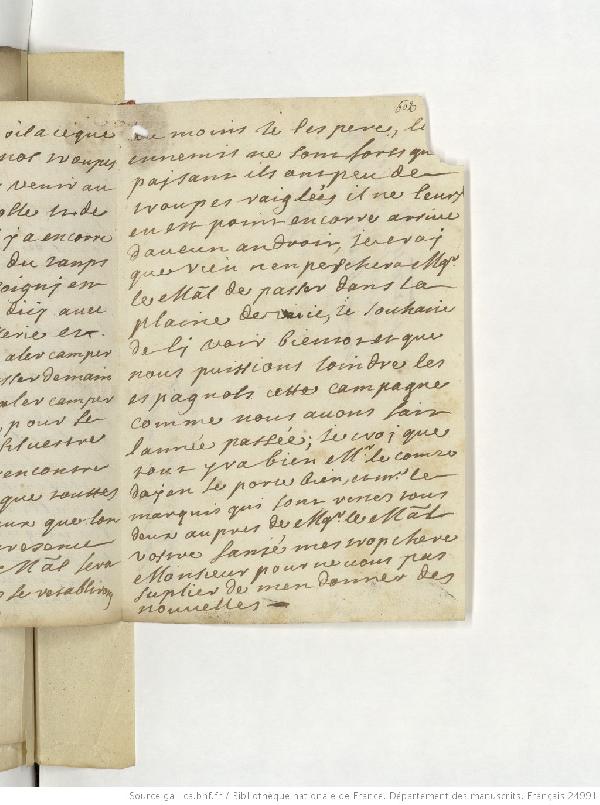 oila ce que
nos troupes
venir au
y a encorre
du tamps
dicy avec
aler camper
demain
aler camper
pour se
siluestre
rencontre
que touttes
que lon
presance
Mal sera
se retabliron
608
au moins je lespere, le
ennemis ne sont forts qu
paisant ils ont peu de
troupes raiglées il ne leur
en est point encorre arrive
daucun androit, je croj
que rien nenpeschera Mgr
le Mal de passer dans la
plaine de je souhaite
de lj voir bientost et que
nous puissions joindre les
espagnols cette campagne
comme nous auons fait
lannée passée; je croj que
tout yra bien Mr le comte
dayen se porte bien, et mr le
marquis qui sont venes tous
deux au pres de Mgr le Mal
vostre santé mes trop chere
Monsieur pour ne vous pas
suplier de men donner des
nouvelles
Source gallica.bnf.fr / Bibliothèque nationale de France. Département des manuscrits. Français 24991